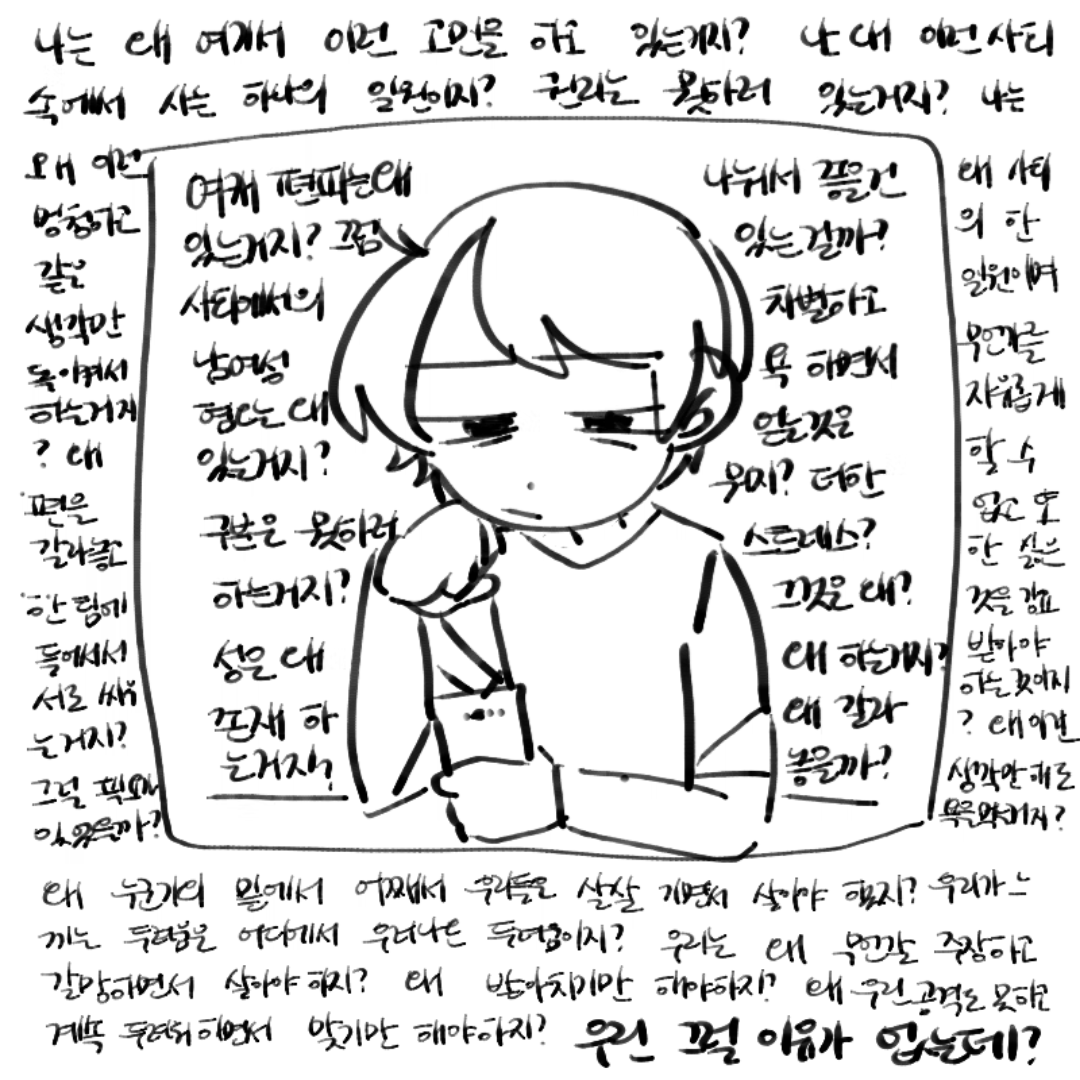 나는 왜 여기서 이런 고민을 하고 있는거지? 난 왜 이런 사회
속에서 사는 하나의 일원이지? 권리는 뭣하러 있는거지? 나는
왜 이런
멍청하고
같은
생각만
하는거지
? 왜
편을
갈라놓고
한 팀에
들어서서
서로 싸우
는거지?
그럴 필요가
있었을까?
여기 편파는 왜
있는거지? 꼭
사회에서의
남여성
혐오는 왜
있는거지?
구분은 뭣하러
하는거지?
성은 왜
존재 하
는거지?
나눠서 좋을건
있는걸까?
차별하고
욕 하면서
얻는것은
뭐지? 더한
스트레스?
그것을 왜?
왜 하는거지?
왜 갈라
놓을까?
왜 사회
의 한
일원이며
무언가를
자유롭게
할 수
없고 또
한 싫은
것을 강요
받아야
하는것이지
? 왜 이런
생각만 해도
왜 누군가의 밑에서 어째서 우리들은 살살 기면서 살아야 했지? 우리가 느
끼는 두려움은 어디에서 우러나온 두려움이지? 우리는 왜 무언갈 주장하고
갈망하면서 살아야 하지? 왜 받아치기만 해야하지? 왜 우린 공격도 못하고
계속 두려워 하면서 맞기만 해야하지? 우린 그럴 이유가 없는데?